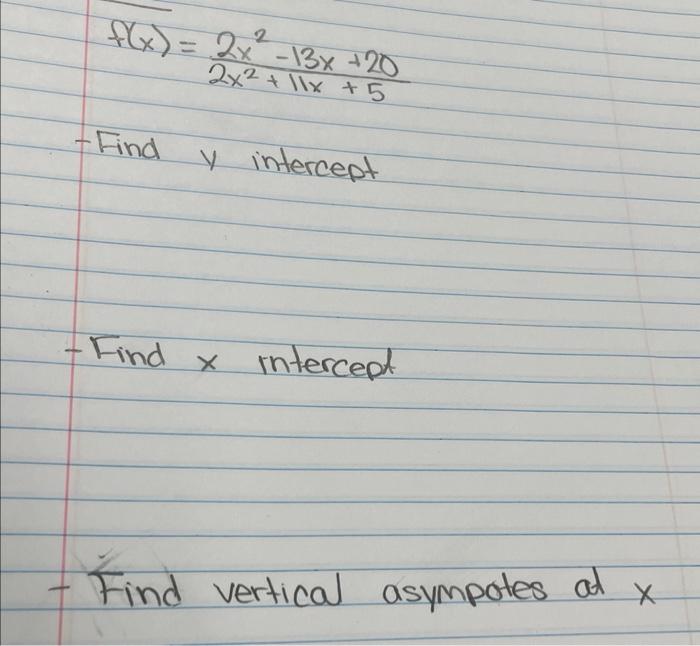 f(x) = 2x² - 13x + 20
2x² + 11x + 5
- Find y intercept
- Find x intercept
- Find vertical asympotes at x